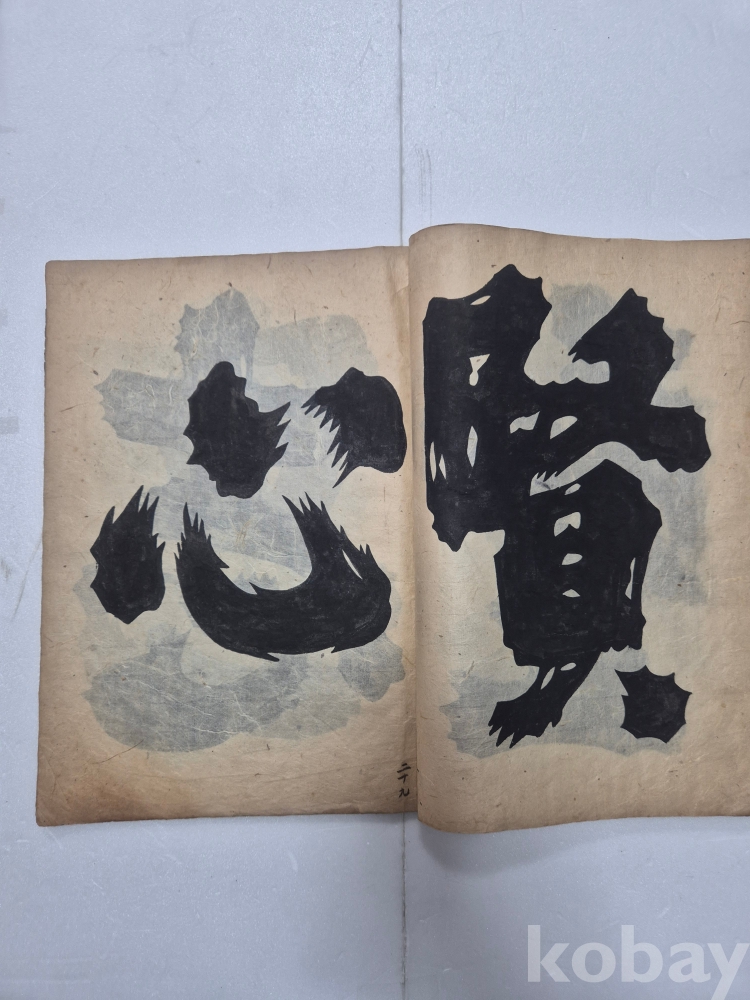 賢
心
二十九
kobay